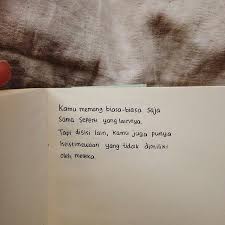 Kamu memang biasa-biasa saja
Sama seperti yang lainnya.
Tapi disisi lain, kamu juga punya
keistimewaan yang tidak dimiliki
oleh mereka.